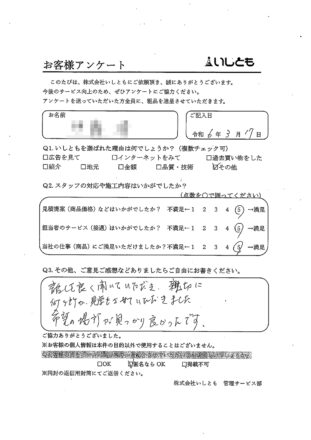 お客様アンケート
いしとも
このたびは、株式会社いしともにご依頼頂き、誠にありがとうございます。
今後のサービス向上のため、ぜひアンケートにご協力ください。
アンケートを送っていただいた方全員に、粗品を進呈させていただきます。
お名前
ご記入日
令和 6 年 3 月 17 日
Q1. いしともを選ばれた理由は何でしょうか？（複数チェック可）
□広告を見て □インターネットをみて □過去買い物をした
□紹介 □地元 □金額 □品質・技術 ☑その他
Q2. スタッフの対応や施工内容はいかがでしたか？
（点数を○で囲ってください）
見積提案（商品価格）などはいかがでしたか？ 不満足← 1 2 3 4 5 →満足
担当者のサービス（接遇）はいかがでしたか？ 不満足← 1 2 3 4 5 →満足
当社の仕事（商品）にご満足いただけましたか？ 不満足← 1 2 3 4 5 →満足
Q3. その他、ご意見ご感想などありましたらご自由にお書きください。
話しを良く聞いていただき、親切に
何ヶ所か、見学させていただきました
希望の場所が見つかり良かったです。
ご協力ありがとうございました。
※お客様の個人情報は本件の目的以外で使用することはございません。
□OK ☑匿名なら OK □掲載不可
※同封の返信用封筒にてご返信ください。
株式会社いしとも 管理サービス部